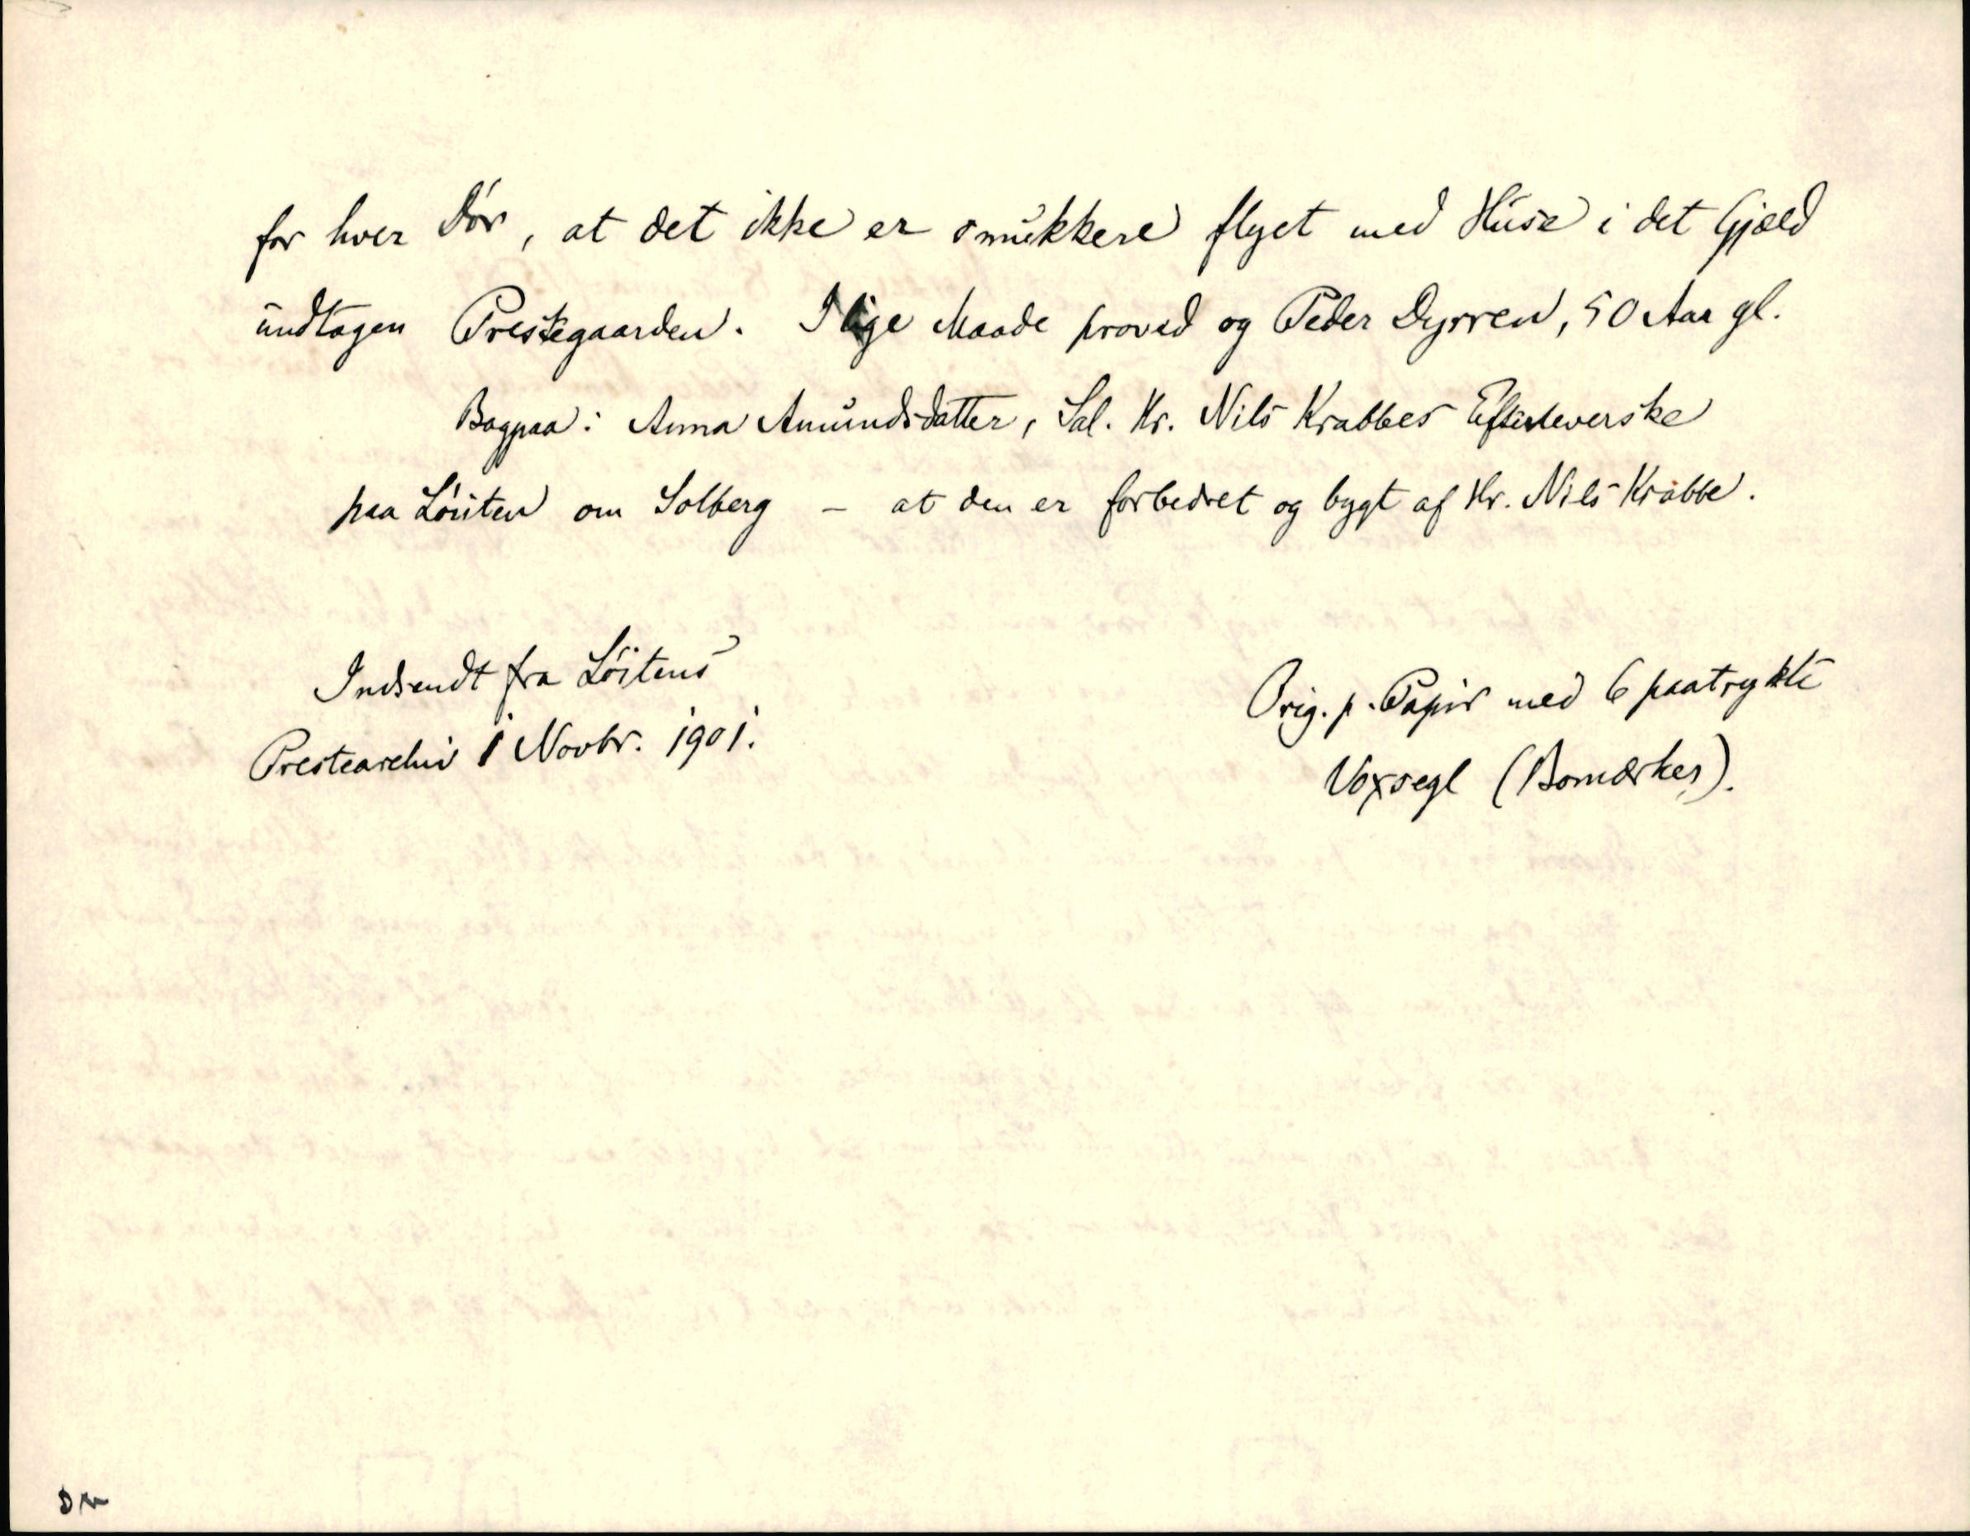 for hver Dør, at det ikke er smukkere flyet med Huse i det Gjæld
undtagen Prestegaarden. I lige Maade proved og Peder Dyrren, 50 Aar gl.
Bagpaa: Anna Amundsdatter, Sal. Hr. Nils Krabbes Efterleverske
paa Løiten om Solberg – at den er forbedret og bygt af Hr. Nils Krabbe.
Indsendt fra Løitens
Prestearchiv 1 Novbr. 1901.
Orig. p. Papir med 6 paatrykte
Voxsegl (Bomærker).